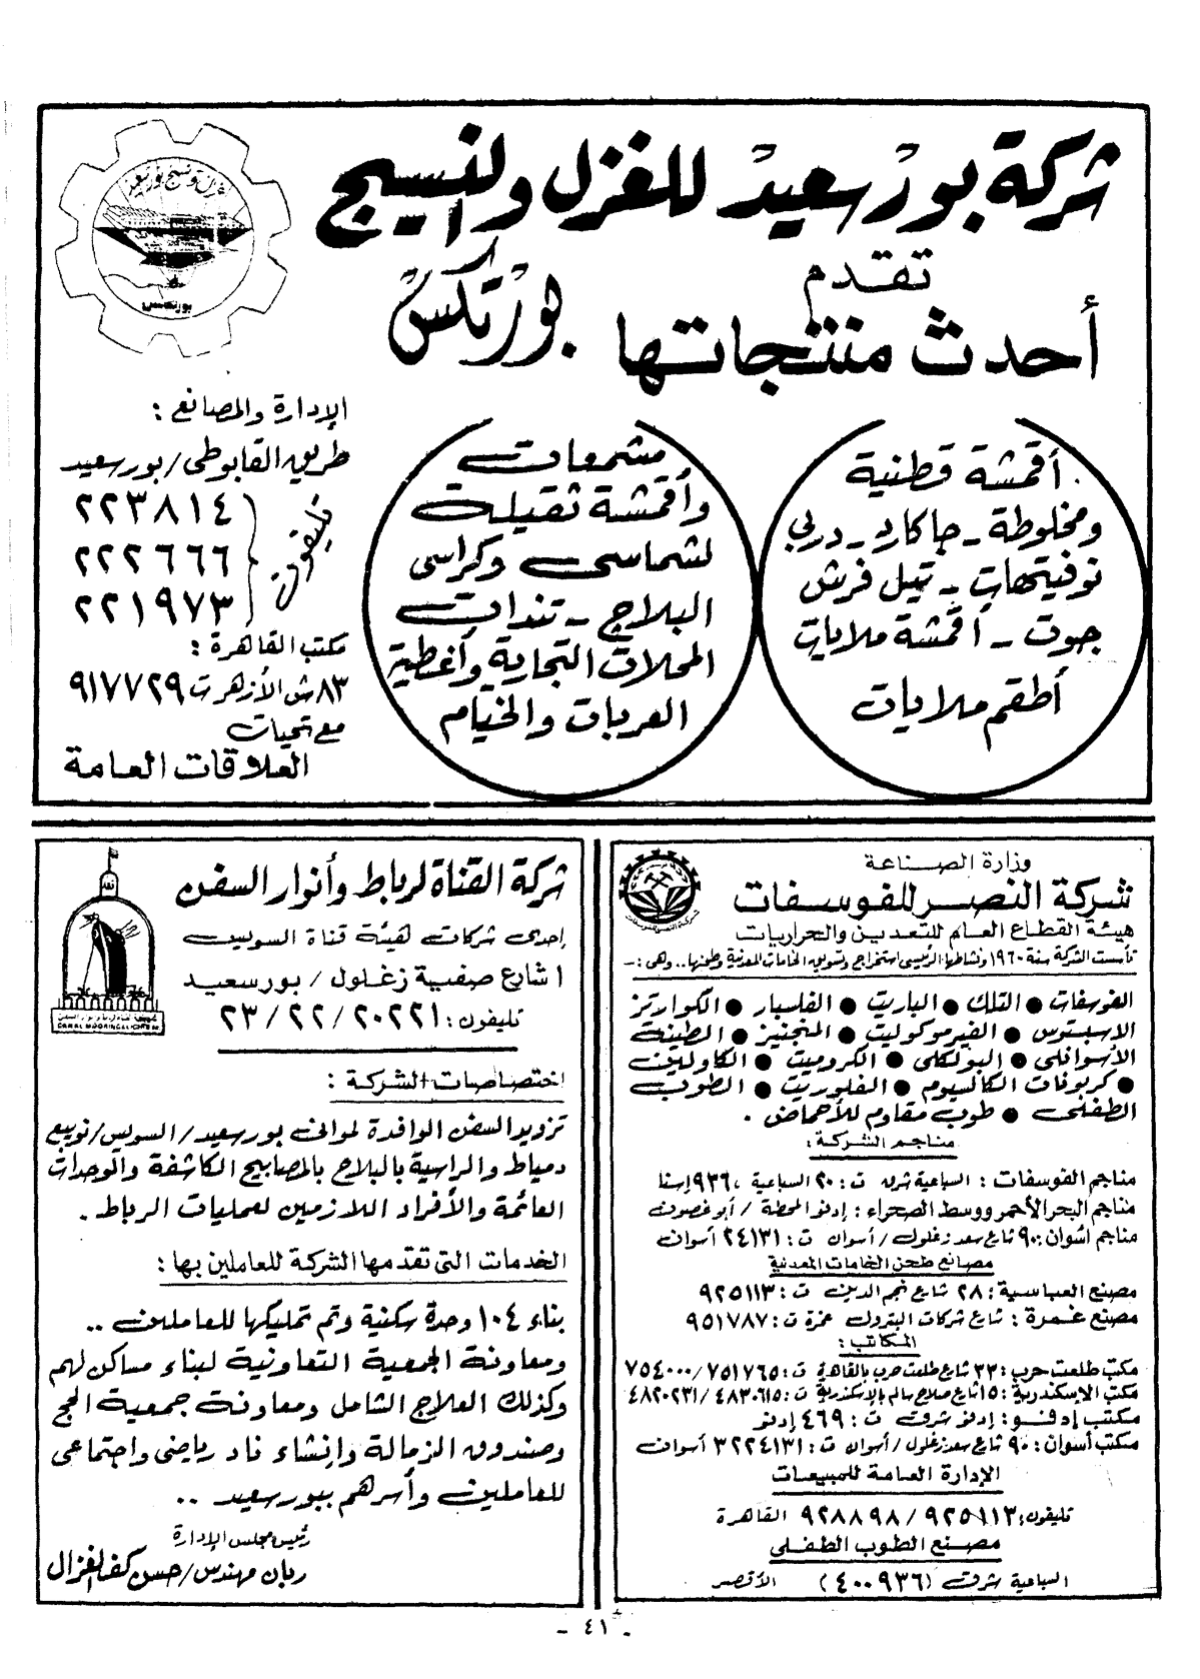 شركة بور سعيد للغزل والنسيج
تقدم
أحدث منتجاتها بورتكس
بورتكس
أقمشة قطنية
ومخلوطة - جاكارد - دربي
نوفيتهات - تيل فرش
جوت - أقمشة ملايات
أطقم ملايات
مشمعات
وأقمشة ثقيلة
لشماسى وكراسى
البلاج - تندات
المحلات التجارية وأغطية
العربات والخيام
الإدارة والمصانع :
طريق القابوطى / بورسعيد
تليفون
٢٢٣٨١٤
٢٢٢٦٦٦
٢٢١٩٧٣
مكتب القاهرة :
٨٣ ش الأزهر ت ٩١٧٧٢٩
مع تحيات
العلاقات العامة
وزارة الصناعة
شركة النصر للفوسفات
هيئة القطاع العام للتعدين والحراريات
تأسست الشركة سنة ١٩٦٠ ونشاطها الرئيسى استخراج وتسويق الخامات المعدنية وطحنها .. وهى :-
الفوسفات ● التلك ● الباريت ● الفلسبار ● الكوارتز
الاسبستوس ● الفيرموكوليت ● المنجنيز ● الطينة
الأسوانلى ● البولكلى ● الكروميت ● الكاولين
● كربونات الكالسيوم ● الفلوريت ● الطوب
الطفلى ● طوب مقاوم للأحماض .
مناجم الشركة :
مناجم الفوسفات : السباعية شرق ت : ٢٠ السباعية ، ٩٣٦ إسنا
مناجم البحر الأحمر ووسط الصحراء : إدفو المحطة / أبو غصون
مناجم أسوان : ٩٠ شارع سعد زغلول / أسوان ت : ٢٤١٣١ أسوان
مصانع طحن الخامات المعدنية
مصنع العباسية : ٢٨ شارع نجم الدين ت : ٩٢٥١١٣
مصنع غمرة : شارع شركات البترول غمرة ت : ٩٥١٧٨٧
المكاتب :
مكتب طلعت حرب : ٣٣ شارع طلعت حرب بالقاهرة ت : ٧٥١٧٦٥ / ٧٥٤٠٠٠
مكتب الإسكندرية : ١٥ شارع صلاح سالم بالإسكندرية ت : ٤٨٣٠٦١٥ / ٤٨٢٠٢٣١
مكتب إدفو : إدفو شرق ت : ٤٦٩ إدفو
مكتب أسوان : ٩٠ شارع سعد زغلول / أسوان ت : ٣٢٢٤١٣١ أسوان
الإدارة العامة للمبيعات
تليفون : ٩٢٥١١٣ / ٩٢٨٨٩٨ القاهرة
مصنع الطوب الطفلى
السباعية شرق (٤٠٠٩٣٦) الأقصر
شركة القناة لرباط وأنوار السفن
إحدى شركات هيئة قناة السويس
١ شارع صفية زغلول / بورسعيد
تليفون : ٢٠٢٢١ / ٢٢ / ٢٣
CANAL MOORING & LIGHTS CO
اختصاصات الشركة :
تزويد السفن الوافدة لموانى بورسعيد / السويس / نويبع
دمياط والراسية بالبلاح بالمصابيح الكاشفة والوحدات
العائمة والأفراد اللازمين لعمليات الرباط .
الخدمات التى تقدمها الشركة للعاملين بها :
بناء ١٠٤ وحدة سكنية وتم تمليكها للعاملين ..
ومعاونة الجمعية التعاونية لبناء مساكن لهم
وكذلك العلاج الشامل ومعاونة جمعية الحج
وصندوق الزمالة وإنشاء ناد رياضى واجتماعى
للعاملين وأسرهم ببورسعيد ..
رئيس مجلس الإدارة
ربان مهندس / حسن كف الغزال
- ٤١ -